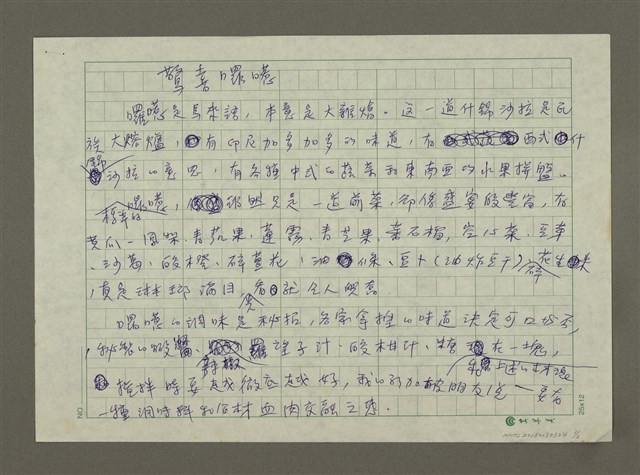 驚喜囉惹
囉惹是馬來語，本意是大雜燴。这一道什錦沙拉是民
族大熔爐，有印尼加多加多的味道，有西式什
錦沙拉的意思，有各種中式的蔬菜和東南亞的水果拼盤。
標準的囉惹，雖然只是一道前菜，卻像盛宴般豐富，有
黃瓜、鳳梨、青芒果、蓮霧、青芒果、番石榴、空心菜、豆芽
、沙葛、酸橙、碎薑花，油條、豆卜（油炸豆干）、碎花生
，真是琳瑯滿目，看就令人興奮
囉惹的調味是秘招，各家掌握的味道決定可口與否，
秘製的蝦醬 辣椒 羅望子汁、酸柑汁、糖 在一塊，
攪拌時要越徹底越好，我的新加坡朋友說 要有
一種調味料和食材血肉交融之感．
NO
25x12